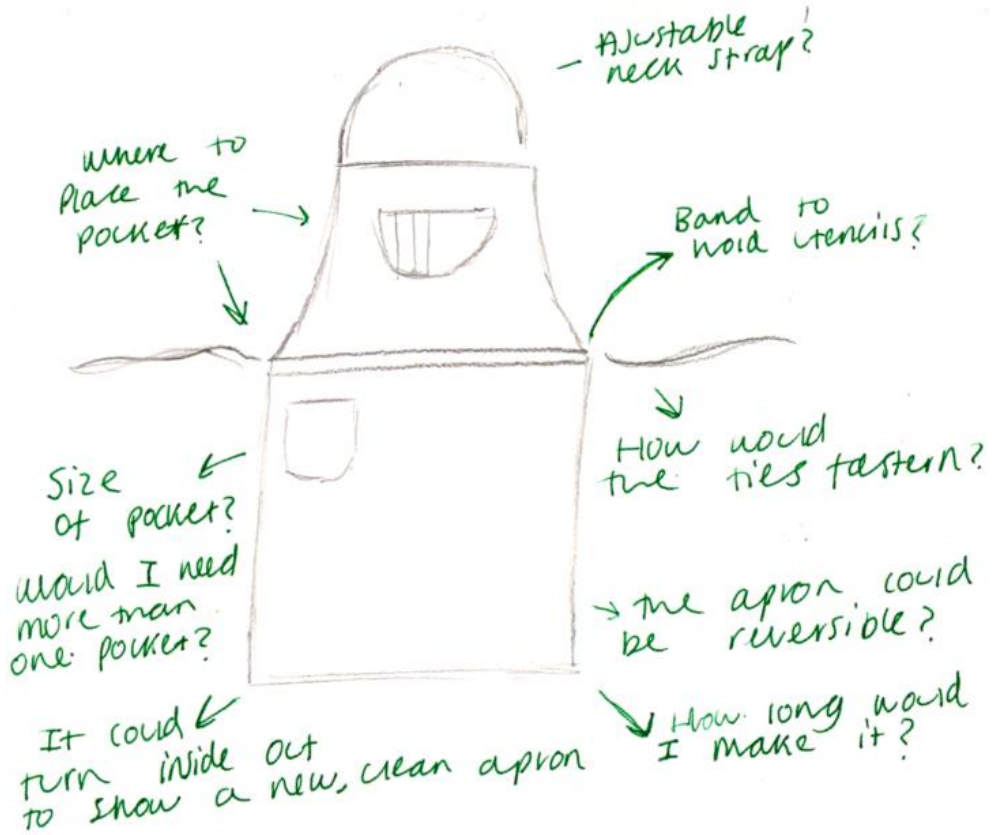 AJustable
neck strap?
where to
Place the
pocket?
Band to
hold utencils?
How would
the ties fastern?
Size
of pocket?
would I need
more than
one pocket?
the apron could
be reversible?
It could
turn inside out
to show a new, clean apron
How long would
I make it?